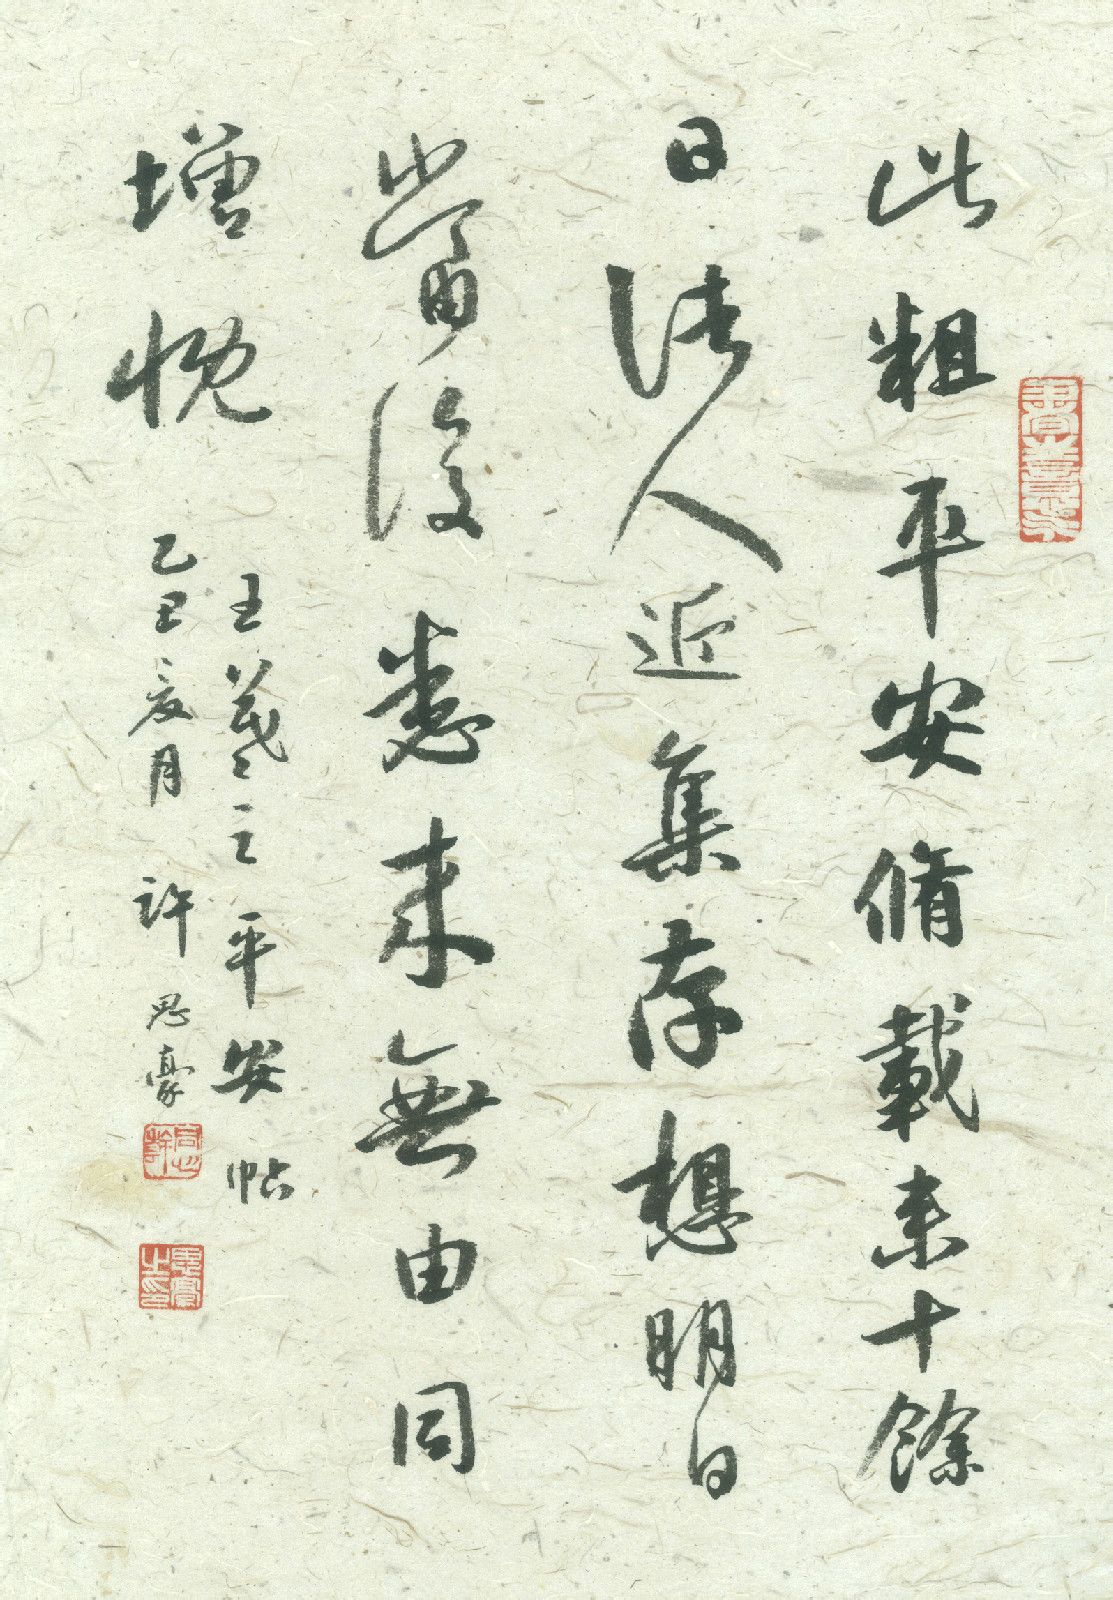 此粗平安脩載来十餘
日諸人近集存想明日
當復悉来無由同
增慨
王羲之平安帖
乙丑夏月 許思豪
思豪之印